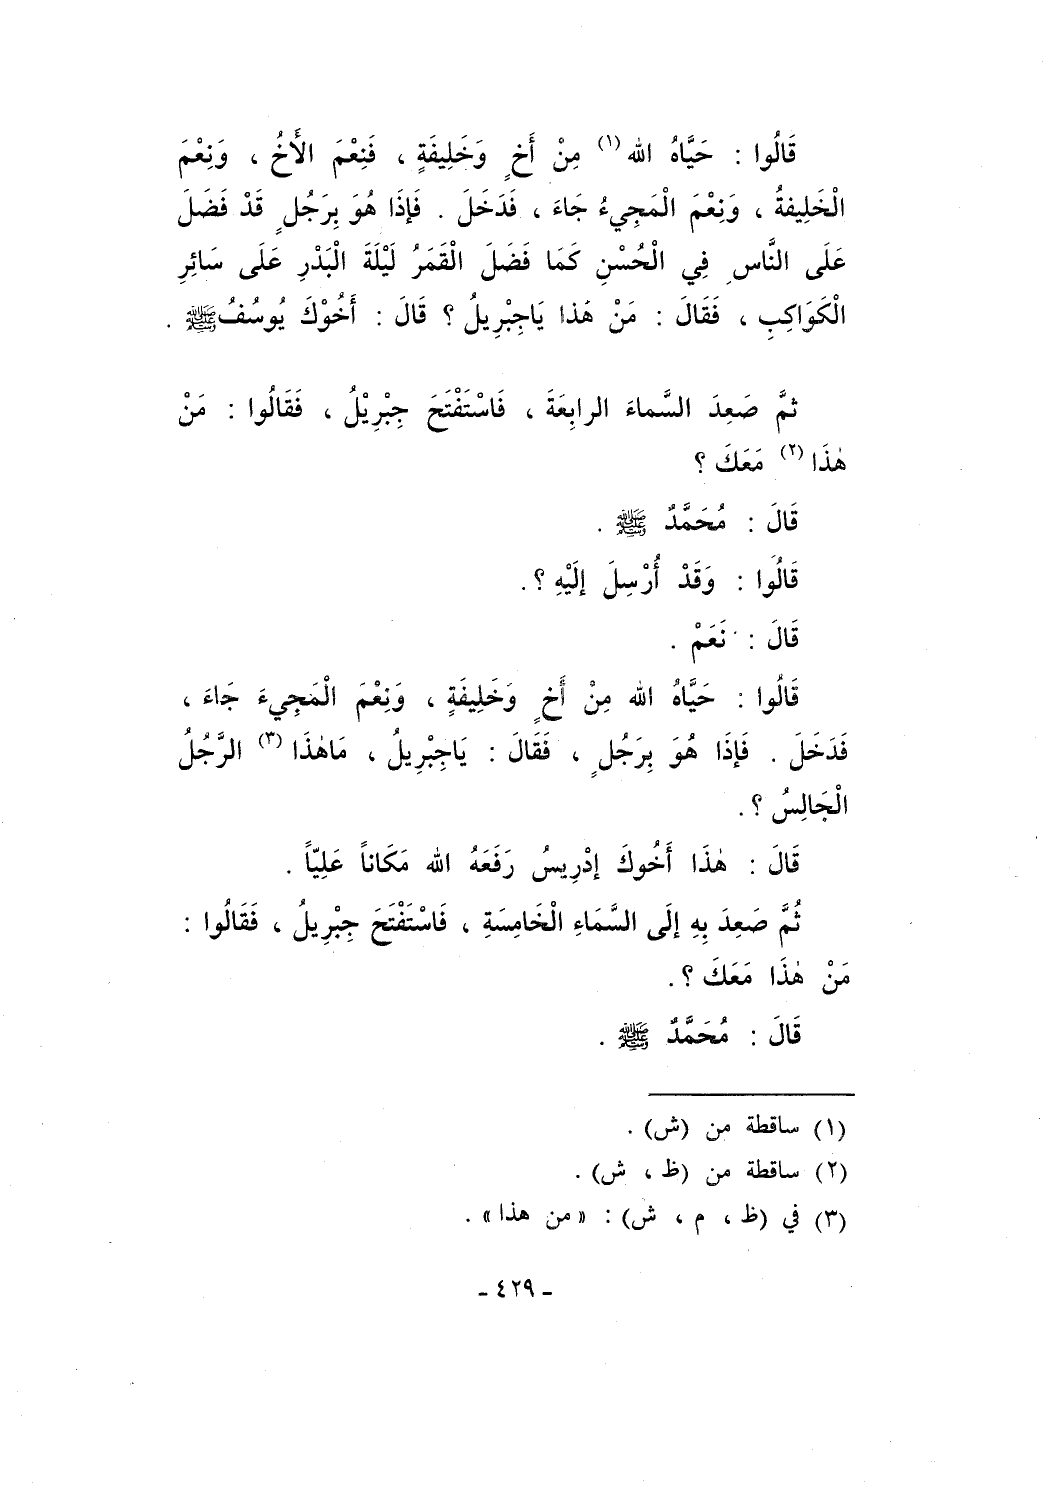 قَالُوا : حَيَّاهُ الله (١) مِنْ أَخٍ وَخَلِيفَةٍ ، فَنِعْمَ الأَخُ ، وَنِعْمَ
الْخَلِيفةُ ، وَنِعْمَ الْمَجِيءُ جَاءَ ، فَدَخَلَ . فَإِذَا هُوَ بِرَجُلٍ قَدْ فَضَلَ
عَلَى النَّاسِ فِي الْحُسْنِ كَمَا فَضَلَ الْقَمَرُ لَيْلَةَ الْبَدْرِ عَلَى سَائِرِ
الْكَوَاكِبِ ، فَقَالَ : مَنْ هَذا يَاجِبْرِيلُ ؟ قَالَ : أَخُوْكَ يُوسُفُ ﷺ .
ثمَّ صَعِدَ السَّماءَ الرابِعَةَ ، فَاسْتَفْتَحَ جِبْرِيْلُ ، فَقَالُوا : مَنْ
هٰذَا (٢) مَعَكَ ؟
قَالَ : مُحَمَّدٌ ﷺ .
قَالُوا : وَقَدْ أُرْسِلَ إلَيْهِ ؟ .
قَالَ : نَعَمْ .
قَالُوا : حَيَّاهُ الله مِنْ أَخٍ وَخَلِيفَةٍ ، وَنِعْمَ الْمَجِيءَ جَاءَ ،
فَدَخَلَ . فَإِذَا هُوَ بِرَجُلٍ ، فَقَالَ : يَاجِبْرِيلُ ، مَاهٰذَا (٣) الرَّجُلُ
الْجَالِسُ ؟ .
قَالَ : هٰذَا أَخُوكَ إدْرِيسُ رَفَعَهُ الله مَكَاناً عَلِيّاً .
ثُمَّ صَعِدَ بِهِ إلَى السَّمَاءِ الْخَامِسَةِ ، فَاسْتَفْتَحَ جِبْرِيلُ ، فَقَالُوا :
مَنْ هٰذَا مَعَكَ ؟ .
قَالَ : مُحَمَّدٌ ﷺ .
(١) ساقطة من (ش) .
(٢) ساقطة من (ظ ، ش) .
(٣) في (ظ ، م ، ش) : « من هذا » .
- ٤٢٩ -